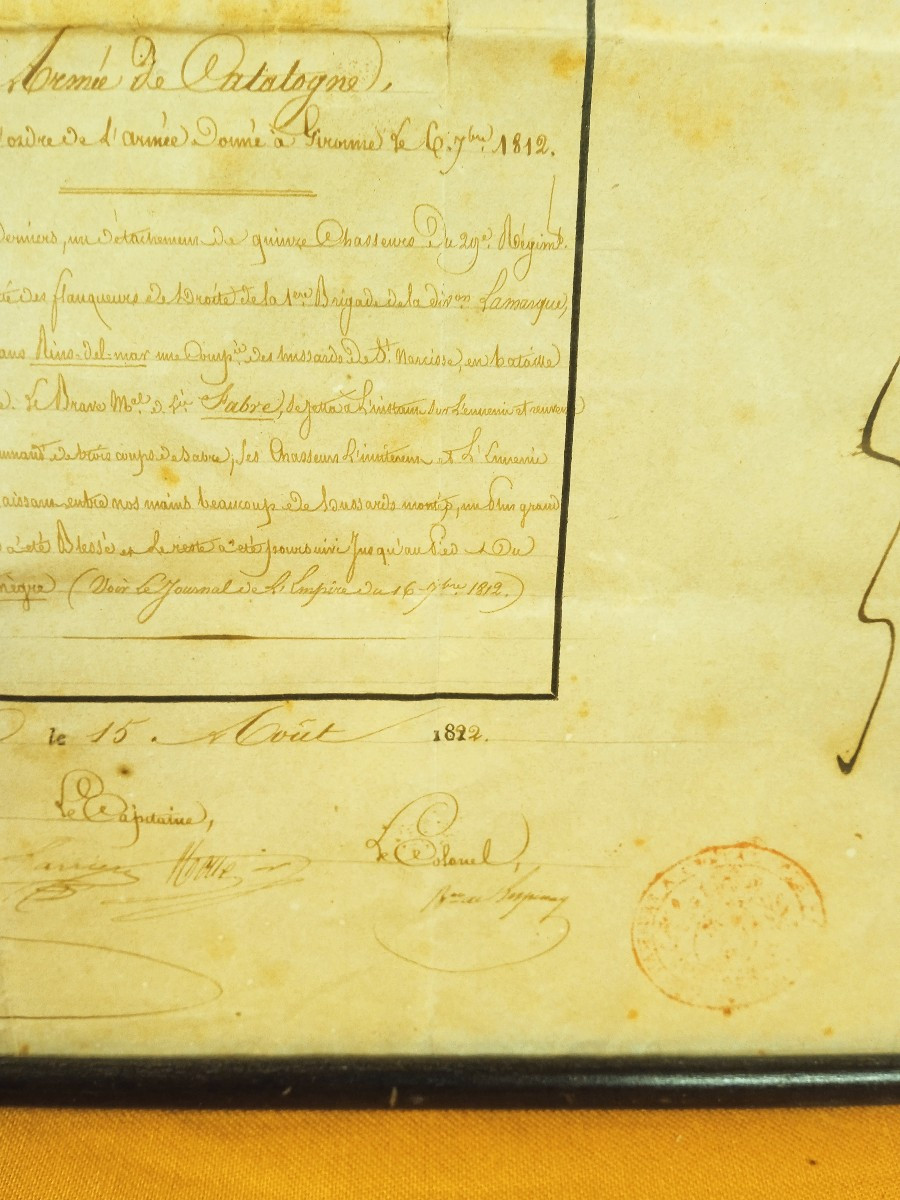 Armée de Catalogne,
'ordre de l'armée Donné à Gironne le 6. 7bre. 1812.
derniers, un détachement de quinze Chasseurs Du 29e. Régimt.
té des flanqueurs de Droite de la 1ere Brigade de la divon Lamarque,
ans Pino-del-mar une Compie. des hussards de St. Narcisse, en bataille
Le Brave Mal. d. Lis Fabre, se jetta à L'instant sur L'ennemi et renversa
mandt. de trois coups de sabre; ses Chasseurs L'imitèrent et L'Ennemi
aissant entre nos mains beaucoup de hussards montés, un Plus grand
a été Blessé et le reste a été poursuivi Jusqu'au Pied Du
nègre (Voir Le Journal de L'Empire du 16 7bre 1812.)
le 15. Août 1822.
Le Capitaine,
Le Colonel,